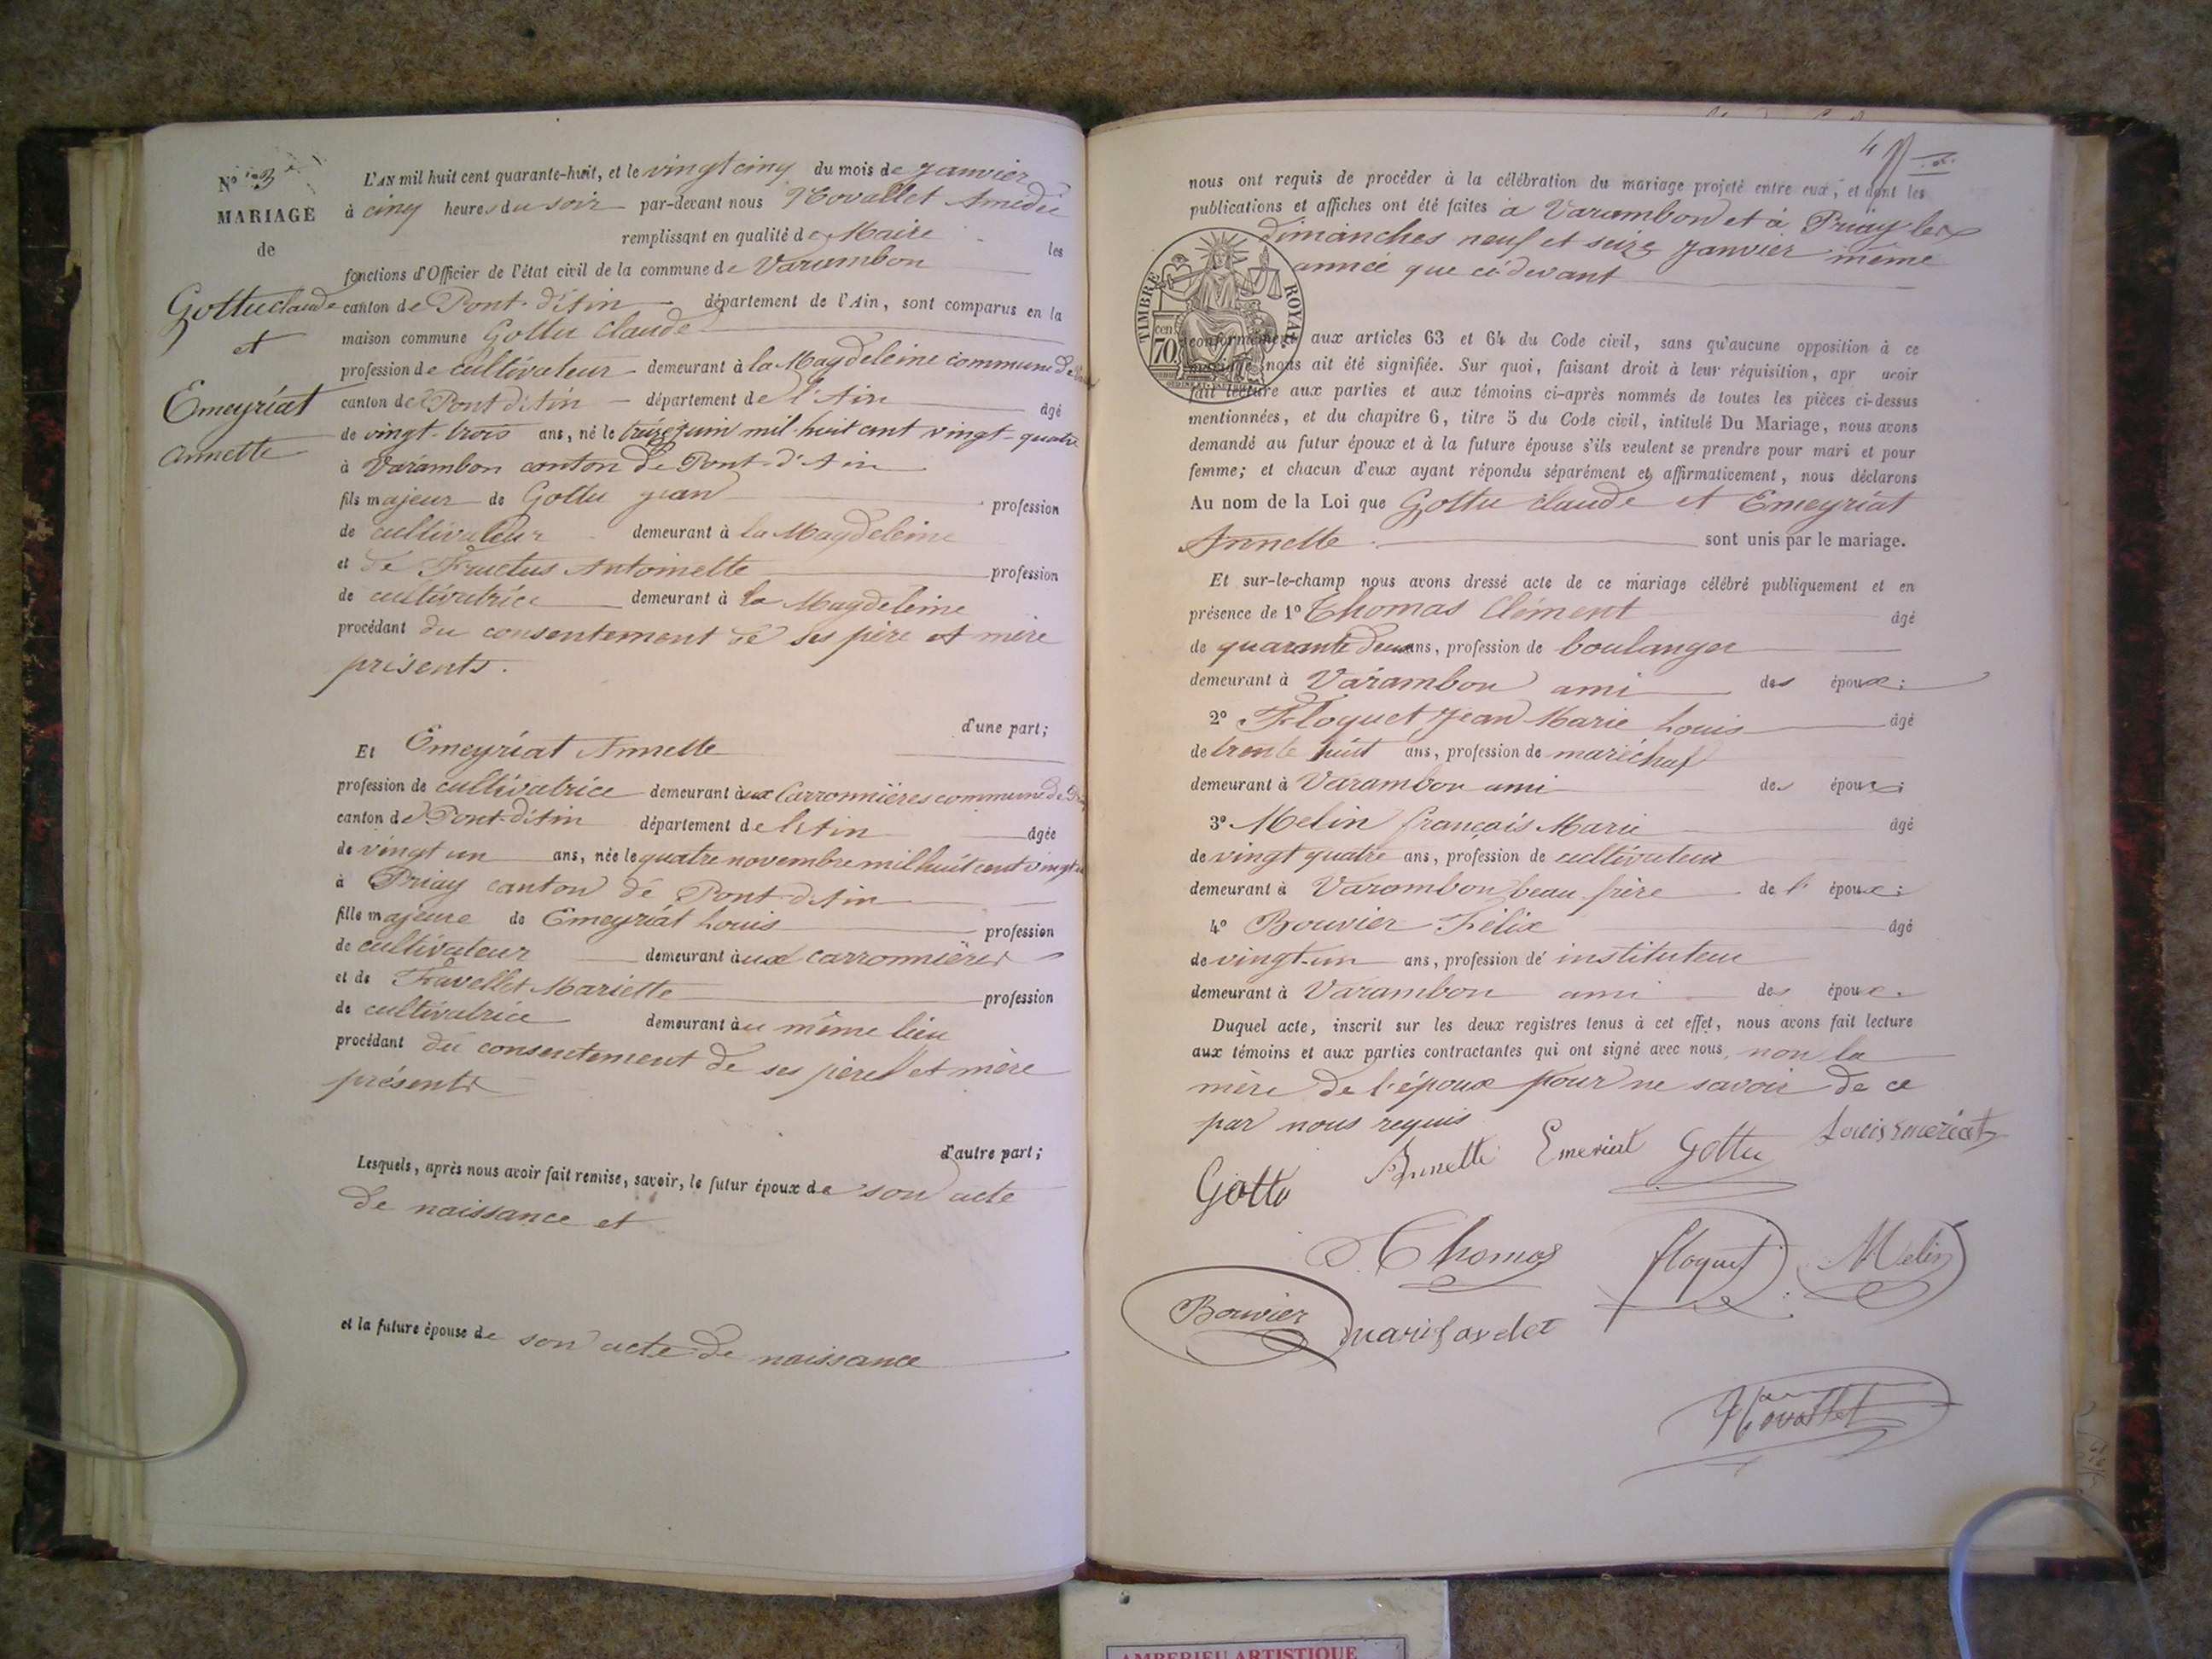 Nº 3
MARIAGE
de
Gottu claude
et
Emeyriat
annette
L'AN mil huit cent quarante-huit, et le vingt cinq du mois de janvier
à cinq heures du soir par-devant nous Novallet Amédée
remplissant en qualité de Maire les
fonctions d'Officier de l'état civil de la commune de Varambon
canton de Pont-d'Ain département de l'Ain, sont comparus en la
maison commune Gottu Claude
profession de cultivateur demeurant à la Magdeleine commune de
canton de Pont d'Ain département de l'Ain âgé
de vingt-trois ans, né le treize juin mil-huit cent vingt-quatre
à Varambon canton de Pont-d'Ain
fils majeur de Gottu jean profession
de cultivateur demeurant à la Magdeleine
et de Fructus Antoinette profession
de cultivatrice demeurant à la Magdeleine
procédant du consentement de ses père et mère
présents.
d'une part;
Et Emeyriat Annette
profession de cultivatrice demeurant aux Carronnières commune de
canton de Pont-d'Ain département de l'Ain âgée
de vingt un ans, née le quatre novembre mil huit cent vingt
à Priay canton de Pont-d'Ain
fille majeure de Emeyriat Louis profession
de cultivateur demeurant aux carronnières
et de Favellet Mariette profession
de cultivatrice demeurant au même lieu
procédant du consentement de ses père et mère
présents
d'autre part;
Lesquels, après nous avoir fait remise, savoir, le futur époux de son acte
de naissance et
et la future épouse de son acte de naissance
4
nous ont requis de procéder à la célébration du mariage projeté entre eux, et dont les
publications et affiches ont été faites à Varambon et à Priay les
dimanches neuf et seize janvier même
année que ci-devant
TIMBRE ROYAL
70 cen
conformément aux articles 63 et 64 du Code civil, sans qu'aucune opposition à ce
nous ait été signifiée. Sur quoi, faisant droit à leur réquisition, apr avoir
fait lecture aux parties et aux témoins ci-après nommés de toutes les pièces ci-dessus
mentionnées, et du chapitre 6, titre 5 du Code civil, intitulé Du Mariage, nous avons
demandé au futur époux et à la future épouse s'ils veulent se prendre pour mari et pour
femme; et chacun d'eux ayant répondu séparément et affirmativement, nous déclarons
Au nom de la Loi que Gottu claude et Emeyriat
Annette sont unis par le mariage.
Et sur-le-champ nous avons dressé acte de ce mariage célébré publiquement et en
présence de 1º Thomas Clément âgé
de quarante deux ans, profession de boulanger
demeurant à Varambon ami des époux;
2º Floquet Jean Marie Louis âgé
de trente huit ans, profession de maréchal
demeurant à Varambon ami des époux;
3º Melin françois Marie âgé
de vingt quatre ans, profession de cultivateur
demeurant à Varambon beau frère de l' époux;
4º Bouvier Félix âgé
de vingt-un ans, profession de instituteur
demeurant à Varambon ami des époux.
Duquel acte, inscrit sur les deux registres tenus à cet effet, nous avons fait lecture
aux témoins et aux parties contractantes qui ont signé avec nous, non la
mère de l'époux pour ne savoir de ce
par nous requis
Gotto Annette Emeriat Gottu Louis emeriat
Thomas floquet Melin
Bouvier mari favelet
Novallet
AMBERIEU ARTISTIQUE